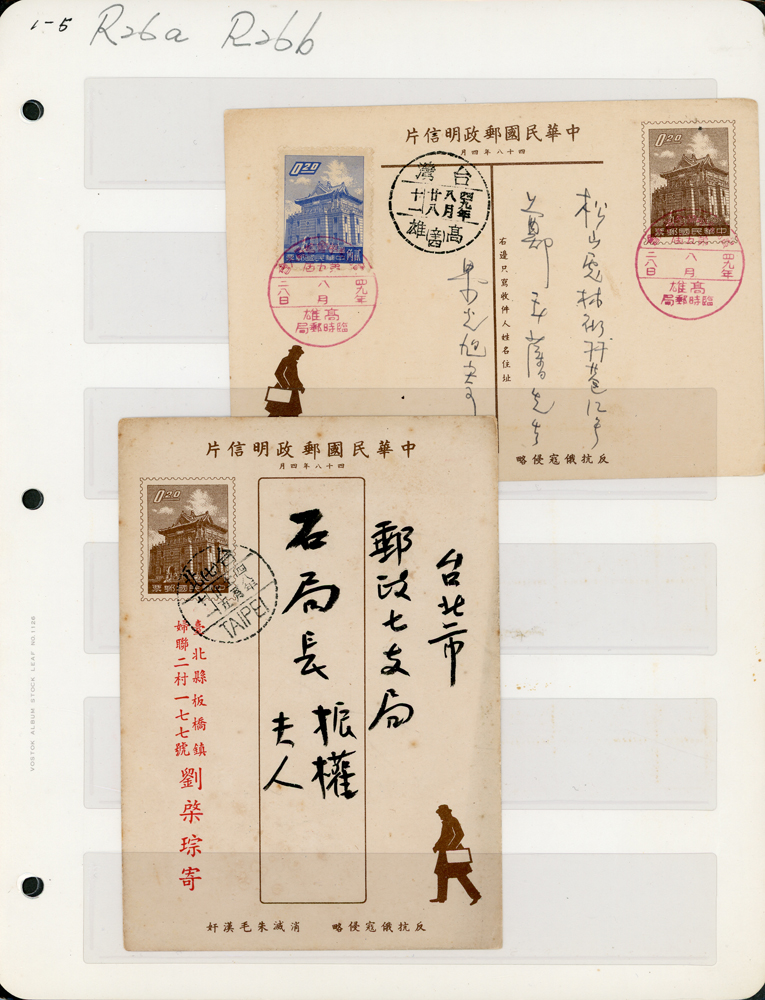 1-5 R26a R26b
中華民國郵政明信片
四十八年四月
0.20
中華民國郵票
0.20
中華民國郵票
台灣
四九年
八月
廿八
十二
高雄
四九年
八月
二八日
高雄
臨時郵局
四九年
八月
二八日
高雄
臨時郵局
右邊只寫收件人姓名住址
反抗俄寇侵略
中華民國郵政明信片
四十八年四月
0.20
中華民國郵票
TAIPEI
台北市
郵政七支局
石局長 振權
夫人
臺北縣板橋鎮
婦聯二村一七七號
劉棨琮寄
反抗俄寇侵略 消滅朱毛漢奸
VOSTOK ALBUM STOCK LEAF NO.1126